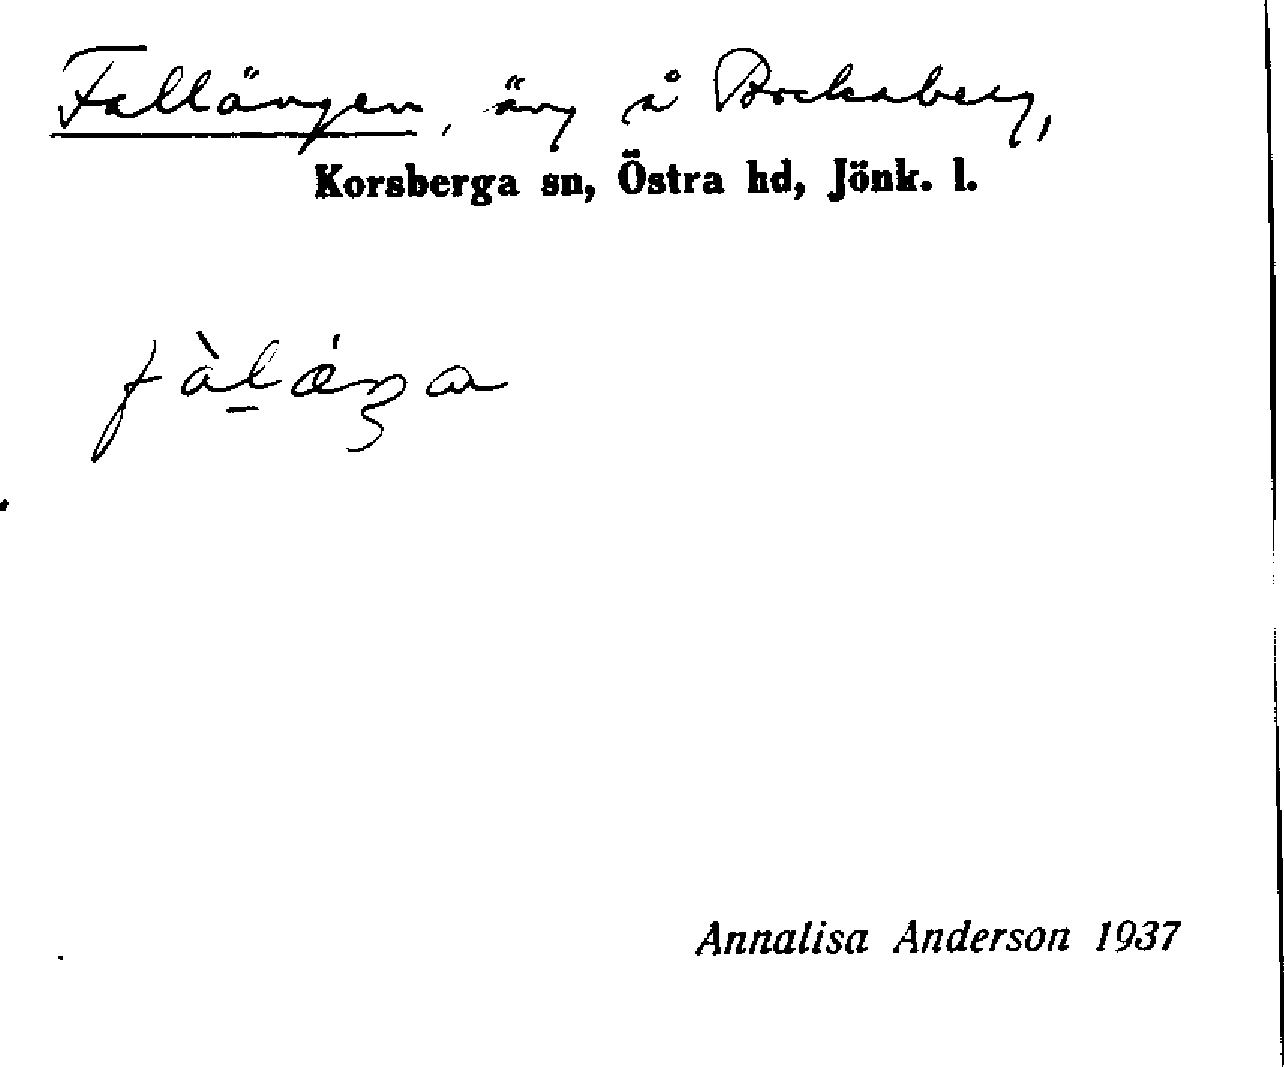 Fallängen, äng å Bocksberg,
Korsberga sn, Östra hd, Jönk. l.
Annalisa Anderson 1937